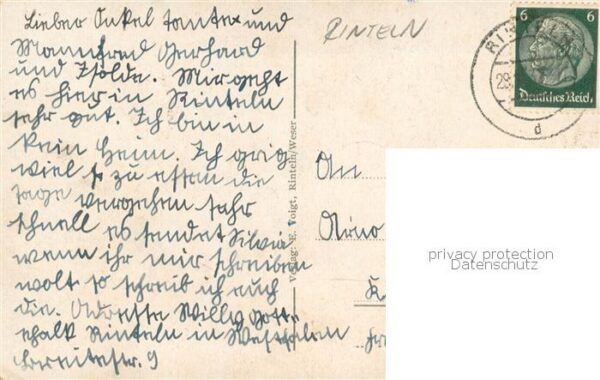 Lieber Onkel Tante und
Mannfred Gerhard
und Isolde. Mir geht
es hier in Rinteln
sehr gut. Ich bin in
kein Heim. Ich
viel so zu essen die
Tage vergehen sehr
schnell es sendet Silvia
wenn ihr mir schreiben
wolt so schreib ich euch
die. Adresse Willy
Rinteln in Westfalen
Breitestr. 9
RINTELN
Verlag: g. Voigt, Rinteln/Weser
An
6 6
Deutsches Reich
RIN
29.
d
privacy protection
Datenschutz